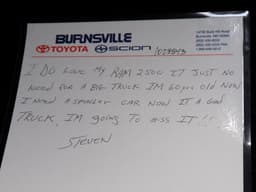 BURNSVILLE
TOYOTA SCION
I DO LOVE MY RAM 2500 IT JUST NO
NEED FOR A BIG TRUCK IM 60 yrs OLD NOW
I NEED A SMALLER CAR NOW IT A GOOD
TRUCK IM going TO MISS IT !!
STEVEN